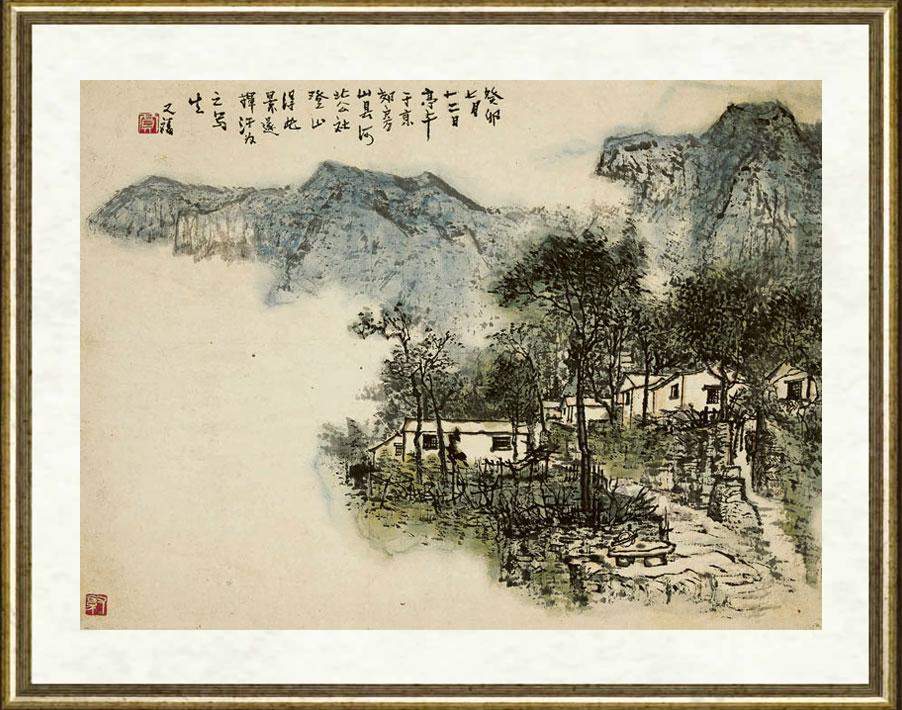 癸卯
七月
十二日
亭午
于京
郊房
山县河
北公社
澄山
得此
景遂
揮汗
之写
生
又福